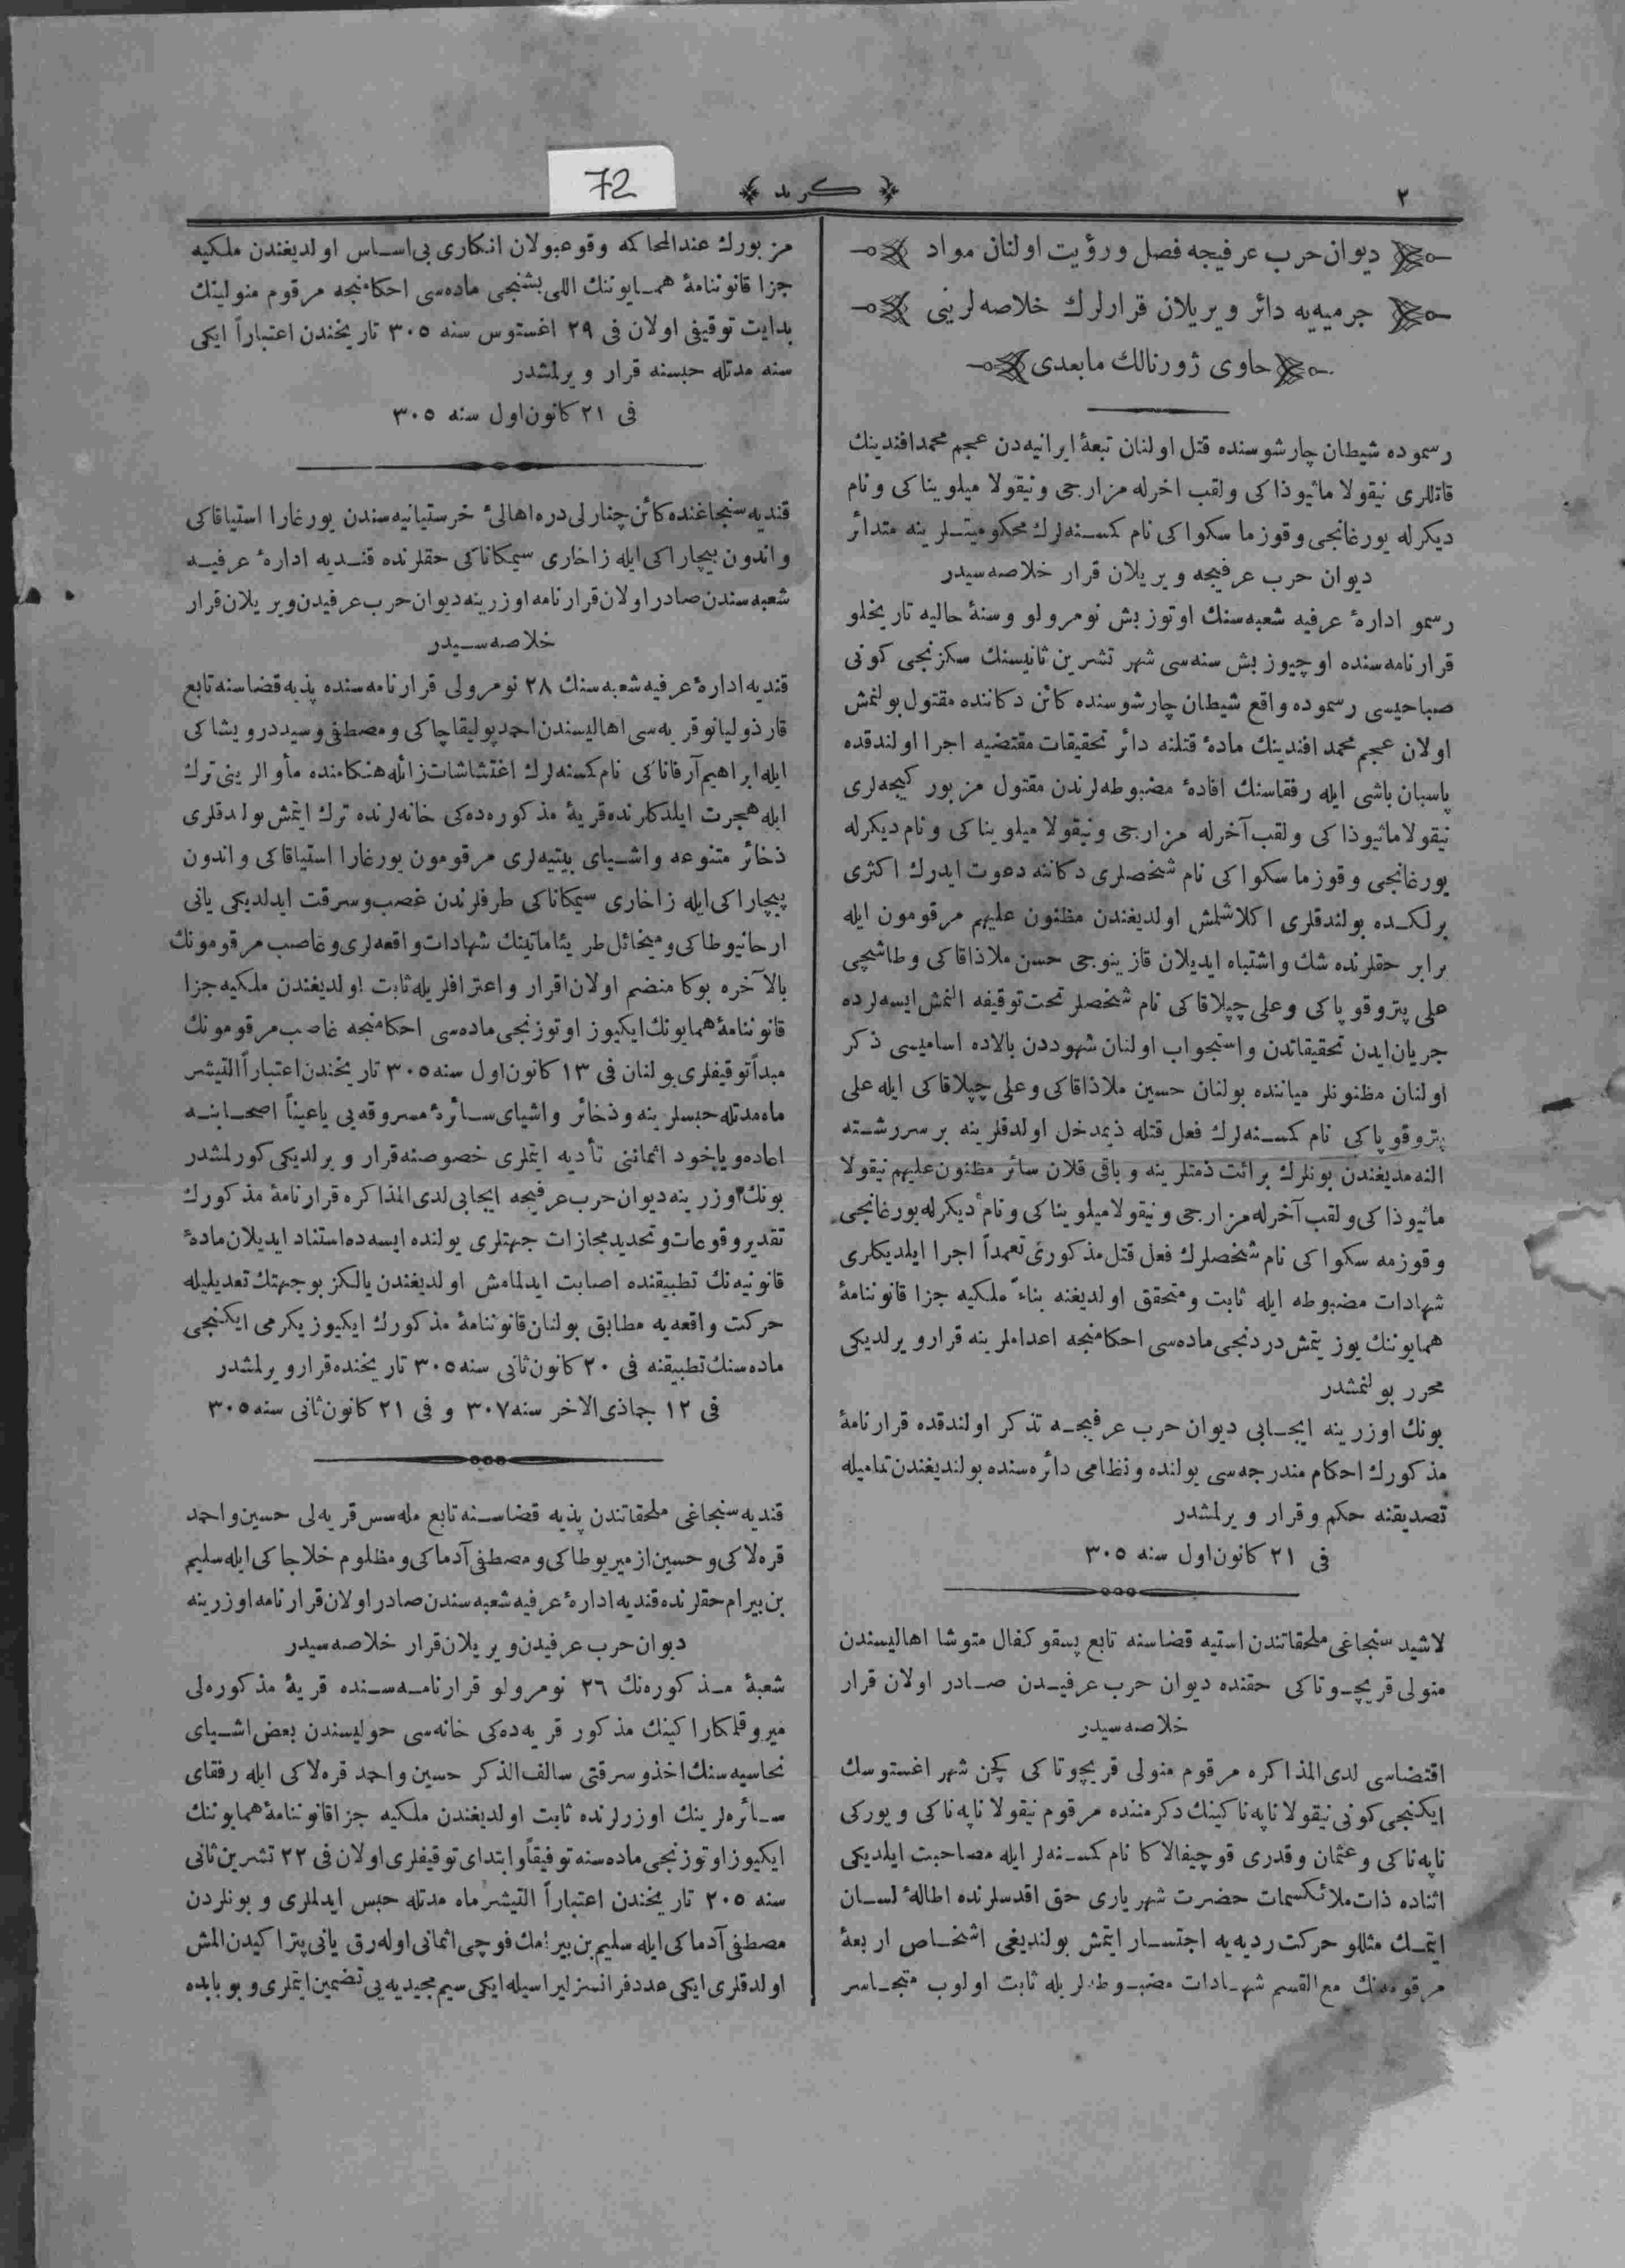 ٢
﴿ كريد ﴾
72
ديوان حرب عرفيجه فصل ورؤيت اولنان مواد
جرميه‌يه دائر ويريلان قرارلرك خلاصه‌لرينى
حاوى ژورنالك مابعدى
رسموده شيطان چارشوسنده قتل اولنان تبعهٔ ايرانيه‌دن عجم محمد افندينك
قاتللرى نيقولا ماثيوذاكى ولقب اخرله مزارجى ونيقولا ميلويناكى ونام
ديكرله يورغانجى وقوزما سكواكى نام كمسنه‌لرك محكوميتلرينه متدائر
ديوان حرب عرفيجه ويريلان قرار خلاصه‌سيدر
رسمو ادارهٔ عرفيه شعبه‌سنك اوتوز بش نومرولو وسنهٔ حاليه تاريخلو
قرارنامه‌سنده اوچيوز بش سنه‌سى شهر تشرين ثانيسنك سكزنجى كونى
صباحيسى رسموده واقع شيطان چارشوسنده كائن دكاننده مقتول بولنمش
اولان عجم محمد افندينك مادهٔ قتلنه دائر تحقيقات مقتضيه اجرا اولندقده
پاسبان باشى ايله رفقاسنك افادهٔ مضبوطه‌لرندن مقتول مزبور كيجه‌لرى
نيقولا ماثيوذاكى ولقب آخرله مزارجى ونيقولا ميلويناكى ونام ديكرله
يورغانجى وقوزما سكواكى نام شخصلرى دكاننه دعوت ايدرك اكثرى
برلكده بولندقلرى اكلاشلمش اولديغندن مظنون عليهم مرقومون ايله
برابر حقلرنده شك واشتباه ايديلان قازينوجى حسن ملاذاقاكى وطاشچى
على پتروقوپاكى وعلى چپلاقاكى نام شخصلر تحت توقيفه النمش ايسه‌لرده
جريان ايدن تحقيقاتدن واستجواب اولنان شهوددن بالاده اساميسى ذكر
اولنان مظنونلر مياننده بولنان حسين ملاذاقاكى وعلى چپلاقاكى ايله على
پتروقوپاكى نام كمسنه‌لرك فعل قتله ذيمدخل اولدقلرينه بر سررشته
النه‌مديغندن بونلرك برائت ذمتلرينه وباقى قلان سائر مظنون عليهم نيقولا
ماثيوذاكى ولقب آخرله مزارجى ونيقولا ميلويناكى ونام ديكرله يورغانجى
وقوزمه سكواكى نام شخصلرك فعل قتل مذكورى تعمداً اجرا ايلديكلرى
شهادات مضبوطه ايله ثابت ومتحقق اولديغنه بناءً ملكيه جزا قانوننامهٔ
همايوننك يوز يتمش دردنجى ماده‌سى احكامنجه اعداملرينه قرار ويرلديكى
محرر بولنمشدر
بونك اوزرينه ايجابى ديوان حرب عرفيجه تذكر اولندقده قرارنامهٔ
مذكورك احكام مندرجه‌سى يولنده ونظامى دائره‌سنده بولنديغندن تماميله
تصديقنه حكم وقرار ويرلمشدر
فى ٢١ كانون اول سنه ٣٠٥
لاشيد سنجاغى ملحقاتندن استيه قضاسنه تابع پسقوكفال متوشا اهاليسندن
منولى قريچوتاكى حقنده ديوان حرب عرفيدن صادر اولان قرار
خلاصه‌سيدر
اقتضاسى لدى المذاكره مرقوم منولى قريچوتاكى كچن شهر اغستوسك
ايكنجى كونى نيقولا ناپه‌ناكينك دكرمننده مرقوم نيقولا ناپه‌ناكى ويوركى
ناپه‌ناكى وعثمان وقدرى قوچيفالاكا نام كمسنه‌لر ايله مصاحبت ايلديكى
اثناده ذات ملائكسمات حضرت شهريارى حق اقدسلرنده اطالهٔ لسان
ايتمك مثللو حركت رديه‌يه اجتسار ايتمش بولنديغى اشخاص اربعهٔ
مرقومه‌نك مع القسم شهادات مضبوطه‌لريله ثابت اولوب متجاسر
مزبورك عند المحاكمه وقوعبولان انكارى بى‌اساس اولديغندن ملكيه
جزا قانوننامهٔ همايوننك اللى بشنجى ماده‌سى احكامنجه مرقوم منولينك
بدايت توقيفى اولان فى ٢٩ اغستوس سنه ٣٠٥ تاريخندن اعتباراً ايكى
سنه مدتله حبسنه قرار ويرلمشدر
فى ٢١ كانون اول سنه ٣٠٥
قنديه سنجاغنده كائن چنارلى دره اهالىٔ خرستيانيه‌سندن يورغارا استياقاكى
واندون پيچاراكى ايله زاخارى سيمكاناكى حقلرنده قنديه ادارهٔ عرفيه
شعبه‌سندن صادر اولان قرارنامه اوزرينه ديوان حرب عرفيدن ويريلان قرار
خلاصه‌سيدر
قنديه ادارهٔ عرفيه شعبه‌سنك ٢٨ نومرولى قرارنامه‌سنده پذيه قضاسنه تابع
قارذوليانو قريه‌سى اهاليسندن احمد پوليقاچاكى ومصطفى وسيد درويشاكى
ايله ابراهيم آرفاناكى نام كمسنه‌لرك اغتشاشات زائله هنكامنده مأوالرينى ترك
ايله هجرت ايلدكلرنده قريهٔ مذكوره‌ده‌كى خانه‌لرنده ترك ايتمش بولدقلرى
ذخائر متنوعه واشياى بيتيه‌لرى مرقومون يورغارا استياقاكى واندون
پيچاراكى ايله زاخارى سيمكاناكى طرفلرندن غصب وسرقت ايدلديكى يانى
ارحانيوطاكى وميخائل طريئاماتينك شهادات واقعه‌لرى وغاصب مرقومونك
بالآخره بوكا منضم اولان اقرار واعترافلريله ثابت اولديغندن ملكيه جزا
قانوننامهٔ همايونك ايكيوز اوتوزنجى ماده‌سى احكامنجه غاصب مرقومونك
مبدأ توقيفلرى بولنان فى ١٣ كانون اول سنه ٣٠٥ تاريخندن اعتباراً التيشر
ماه مدتله حبسلرينه وذخائر واشياى سائرهٔ مسروقه‌يى ياعيناً اصحابنه
اعاده وياخود اثماننى تأديه ايتملرى خصوصنه قرار ويرلديكى كورلمشدر
بونك اوزرينه ديوان حرب عرفيجه ايجابى لدى المذاكره قرارنامهٔ مذكورك
تقدير وقوعات وتحديد مجازات جهتلرى يولنده ايسه‌ده استناد ايديلان مادهٔ
قانونيه‌نك تطبيقنده اصابت ايدلمامش اولديغندن يالكز بوجهتك تعديليله
حركت واقعه‌يه مطابق بولنان قانوننامهٔ مذكورك ايكيوز يكرمى ايكنجى
ماده‌سنك تطبيقنه فى ٢٠ كانون ثانى سنه ٣٠٥ تاريخنده قرار ويرلمشدر
فى ١٢ جماذى الاخر سنه ٣٠٧ و فى ٢١ كانون ثانى سنه ٣٠٥
قنديه سنجاغى ملحقاتندن پذيه قضاسنه تابع مله‌سس قريه‌لى حسين واحمد
قره‌لاكى وحسين ازميريوطاكى ومصطفى آدماكى ومظلوم خلاجاكى ايله سليم
بن بيرام حقلرنده قنديه ادارهٔ عرفيه شعبه‌سندن صادر اولان قرارنامه اوزرينه
ديوان حرب عرفيدن ويريلان قرار خلاصه‌سيدر
شعبهٔ مذكوره‌نك ٢٦ نومرولو قرارنامه‌سنده قريهٔ مذكوره‌لى
ميروقلكاراكينك مذكور قريه‌ده‌كى خانه‌سى حوليسندن بعض اشياى
نحاسيه‌سنك اخذ وسرقتى سالف الذكر حسين واحمد قره‌لاكى ايله رفقاى
سائره‌لرينك اوزرلرنده ثابت اولديغندن ملكيه جزا قانوننامهٔ همايوننك
ايكيوز اوتوزنجى ماده‌سنه توفيقاً وابتداى توقيفلرى اولان فى ٢٢ تشرين ثانى
سنه ٢٠٥ تاريخندن اعتباراً التيشر ماه مدتله حبس ايدلملرى و بونلردن
مصطفى آدماكى ايله سليم بن بيرامك فوچى اثمانى اوله‌رق يانى پتراكيدن المش
اولدقلرى ايكى عدد فرانسز ليراسيله ايكى سيم مجيديه‌يى تضمين ايتملرى و بوبابده